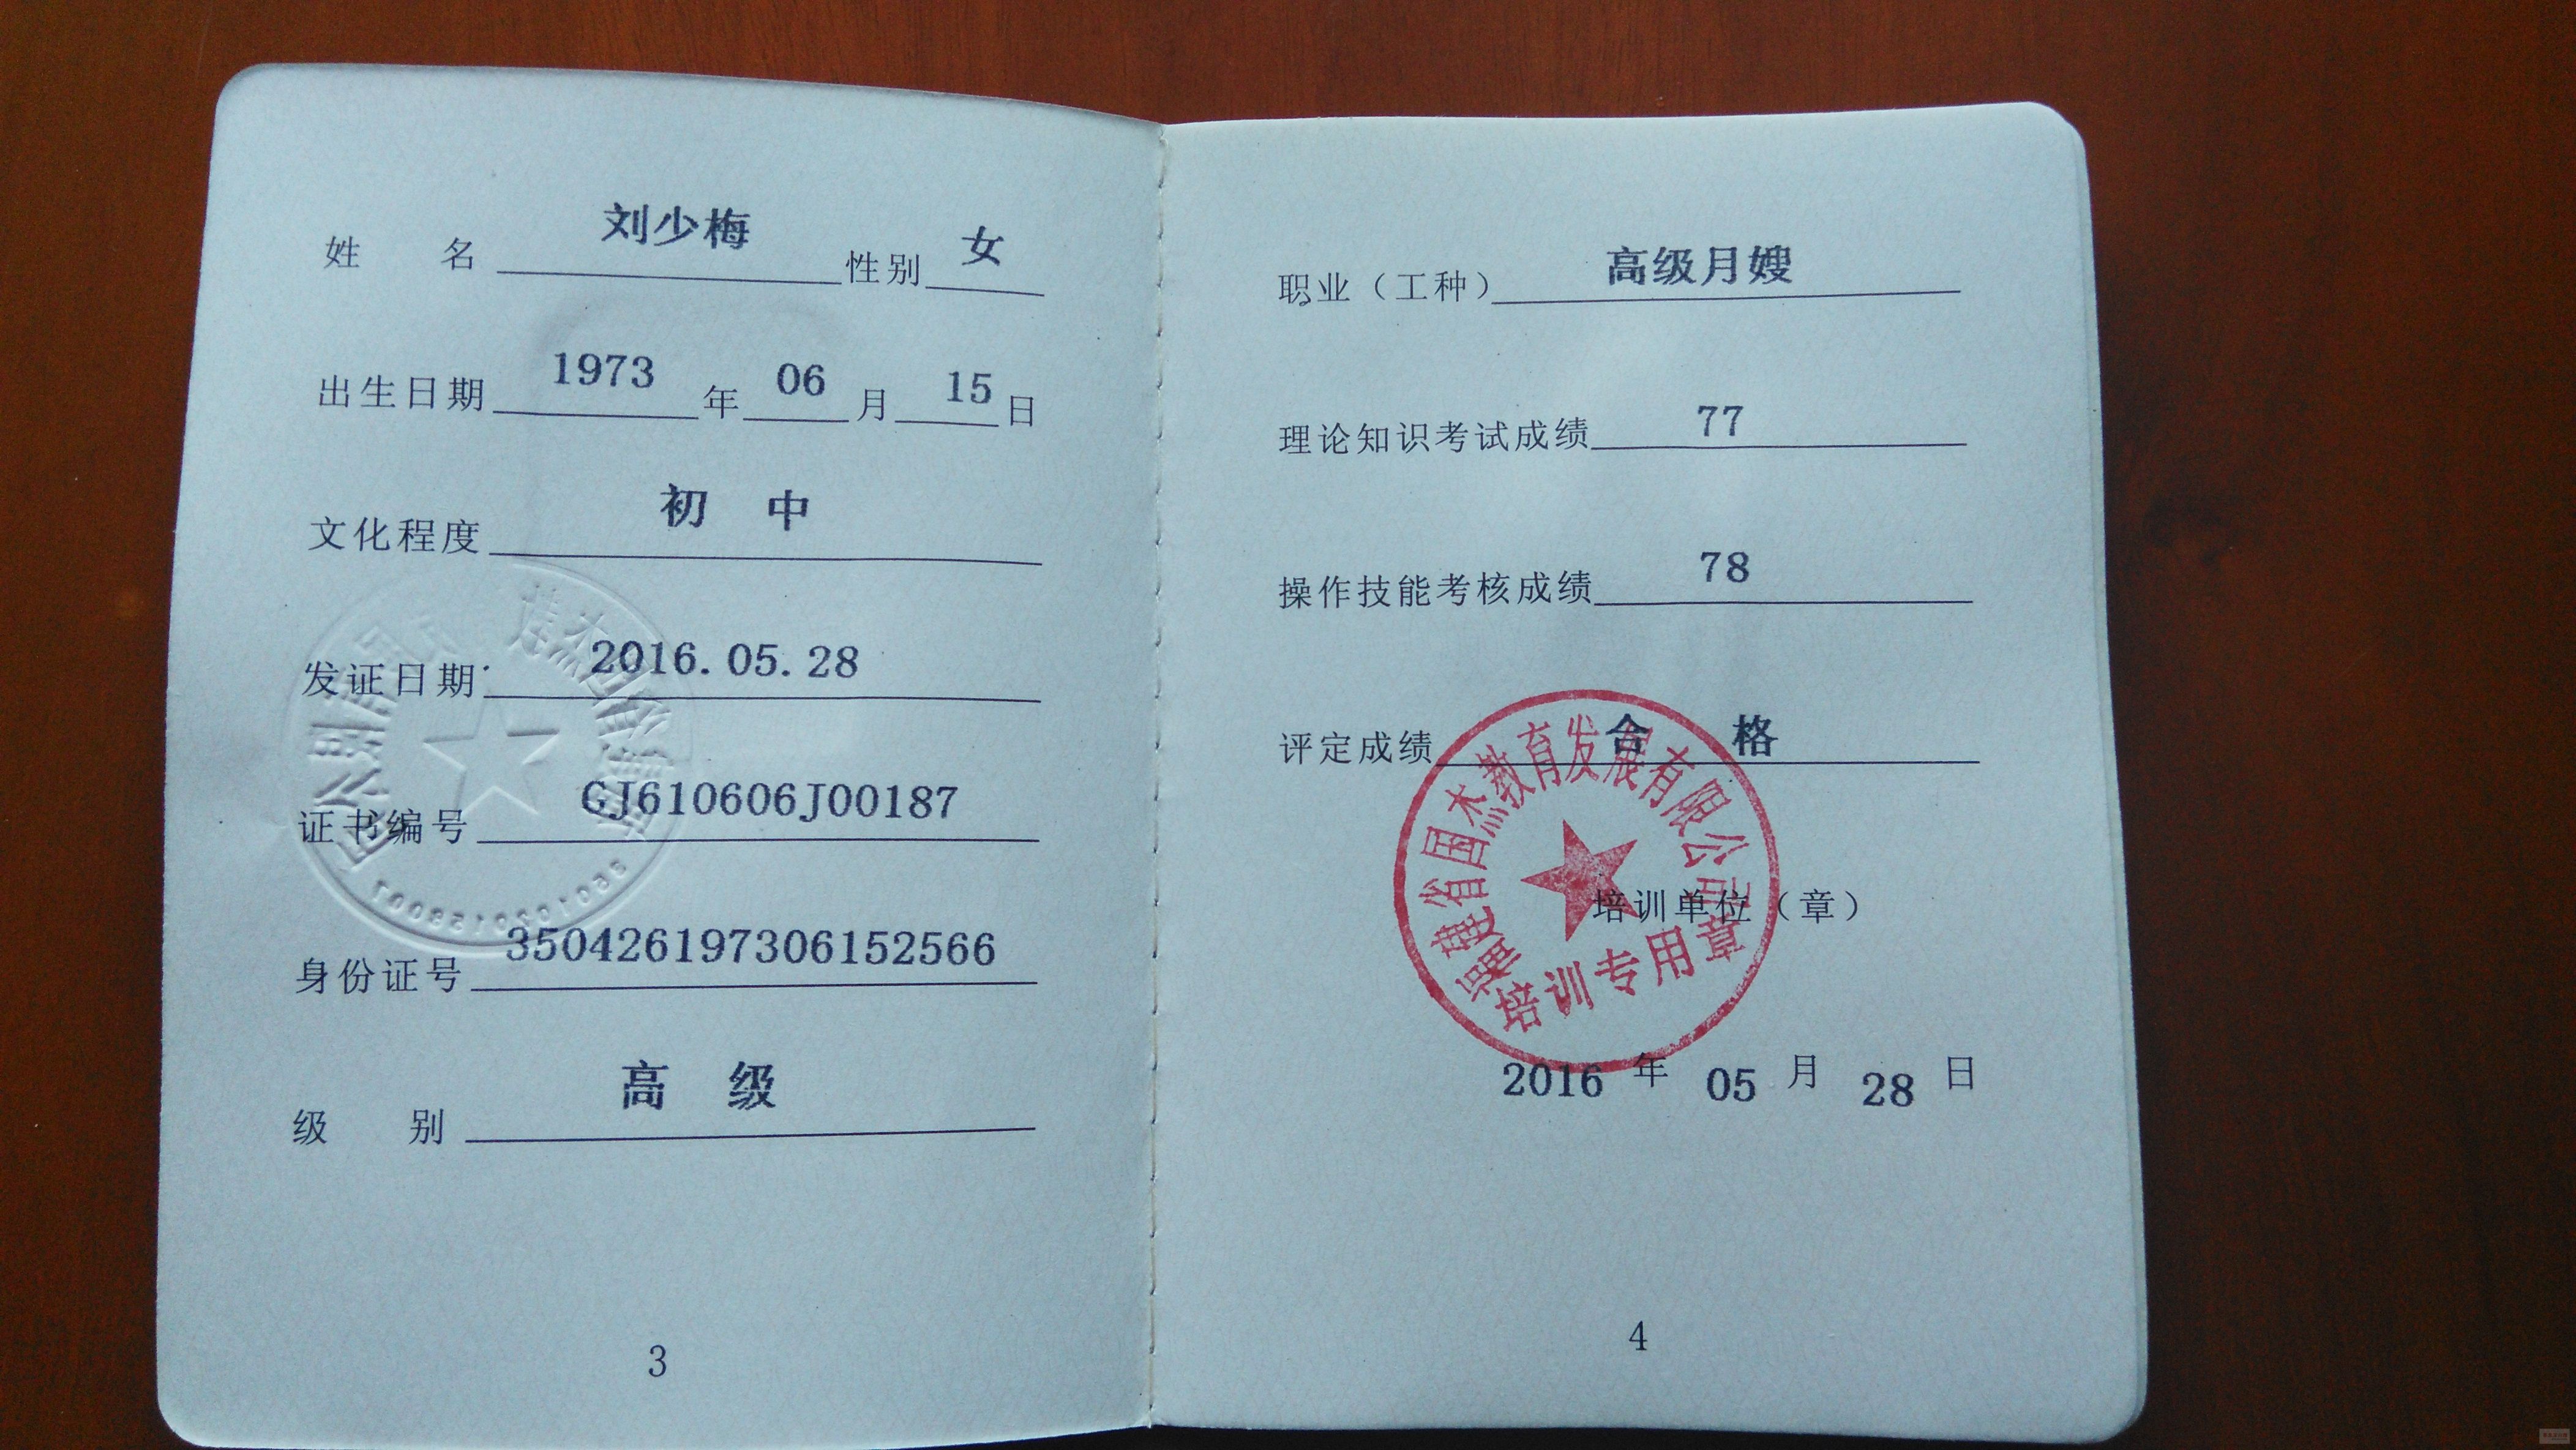 姓 名 刘少梅 性别 女
出生日期 1973 年 06 月 15 日
文化程度 初 中
发证日期 2016.05.28
证书编号 GJ610606J00187
身份证号 350426197306152566
级 别 高 级
3
职业（工种） 高级月嫂
理论知识考试成绩 77
操作技能考核成绩 78
评定成绩 合 格
福建省国杰教育发展有限公司
培训单位（章）
培训专用章
2016 年 05 月 28 日
4